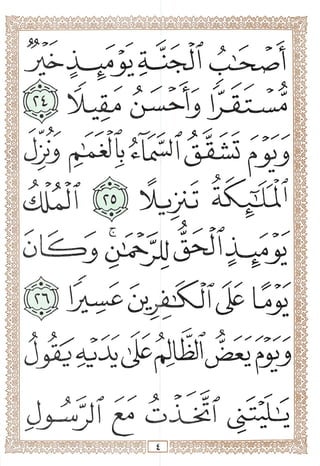 أَصْحَابُ الْجَنَّةِ يَوْمَئِذٍ خَيْرٌ
مُّسْتَقَرًّا وَأَحْسَنُ مَقِيلًا ٢٤
وَيَوْمَ تَشَقَّقُ السَّمَاءُ بِالْغَمَامِ وَنُزِّلَ
الْمَلَائِكَةُ تَنزِيلًا ٢٥ الْمُلْكُ
يَوْمَئِذٍ الْحَقُّ لِلرَّحْمَانِ ۚ وَكَانَ
يَوْمًا عَلَى الْكَافِرِينَ عَسِيرًا ٢٦
وَيَوْمَ يَعَضُّ الظَّالِمُ عَلَى يَدَيْهِ يَقُولُ
يَالَيْتَنِي اتَّخَذْتُ مَعَ الرَّسُولِ
٤